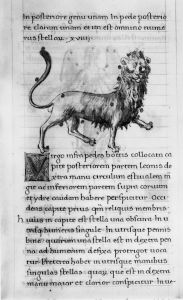 in posteriore genu unam. In pede posterio
re claram unam et in est omnino nume
rus stellaꝝ. xviiii.
Virgo infra pedes bootis collocata ca
pite posteriorem partem Leonis de
xtra manu circulum tan
git ac inferiorem partem supra coruum
et ydre caudam habere perspicitur. Occi
dens capite prius reliquis membris
huius in capite est stella una obscura In u
trisque humeris singule. In utrisque pennis
bine quarum una stella est in dextera pen
na ad humerum defixa uoca
tur. Preterea habet in utrisque manibus
singulas stellas. quaꝝ que est in dextera
manu maior et clarior conspicitur. In ue